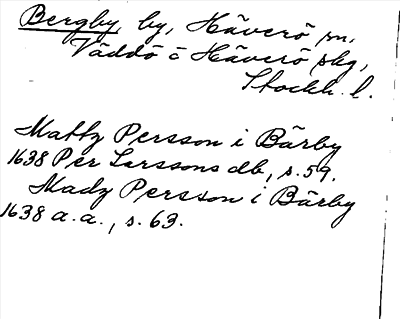 Bergby, by, Häverö sn,
Väddö o Häverö skg,
Stockh. l.
Matts Persson i Bärby
1638 Per Larssons db, s. 59.
Mads Persson i Bärby
1638 a.a., s. 63.